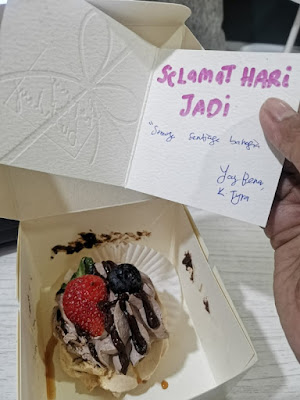 SELAMAT HARI
JADI
"Semoga sentiasa bahagia
Yang Benar,
K Tyra